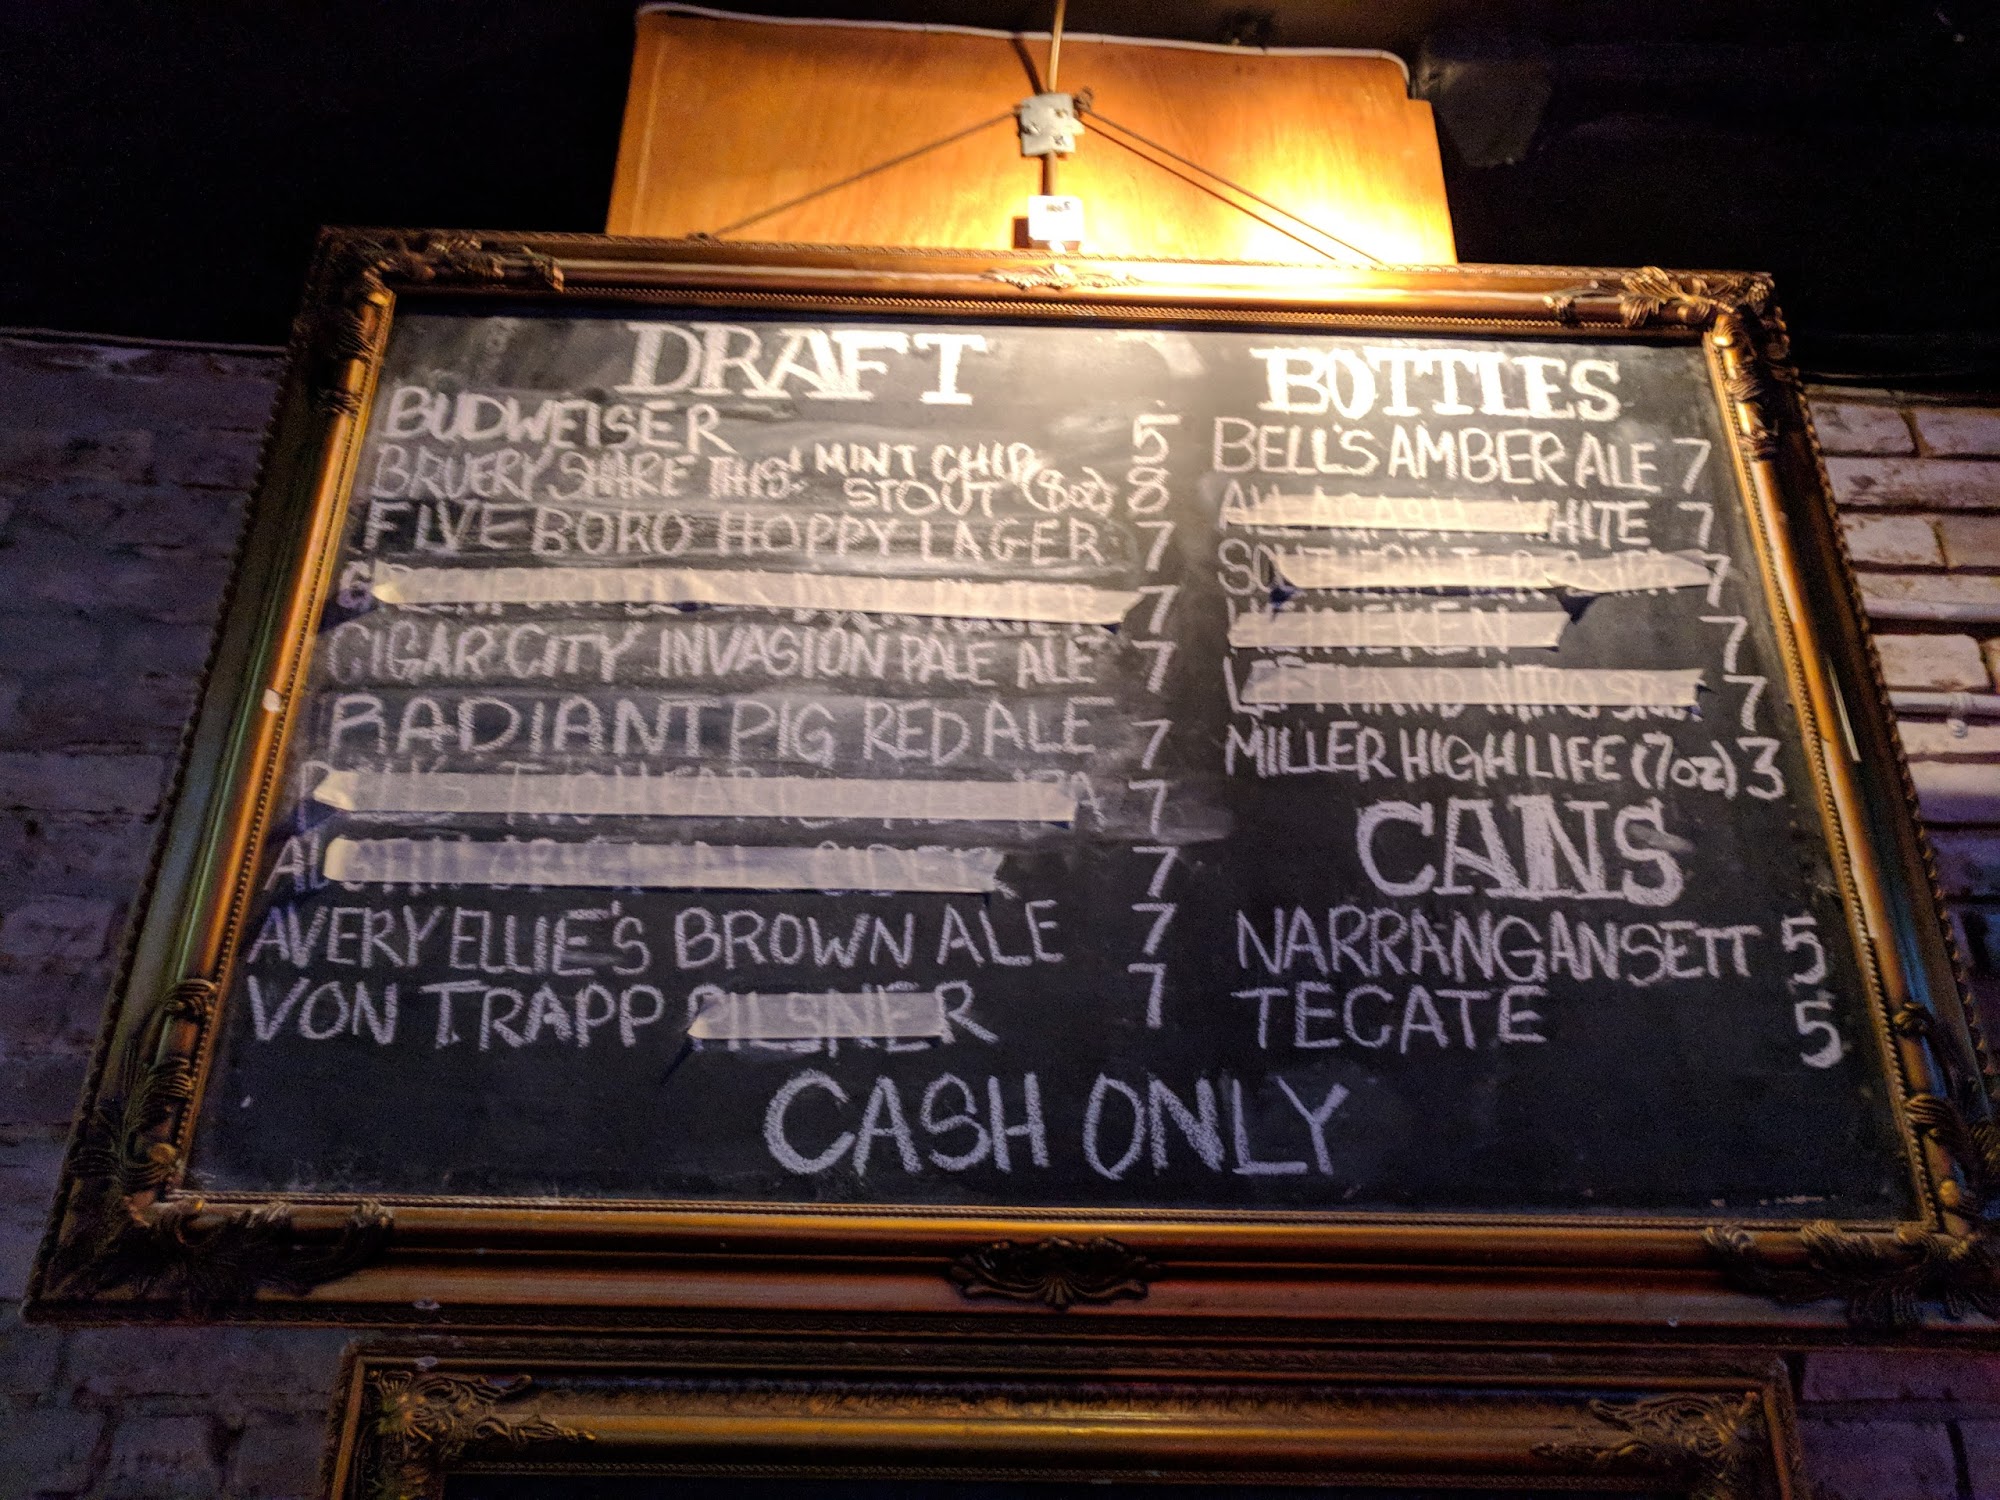 DRAFT
BUDWEISER 5
BRUERY SHARE THIS! MINT CHIP
STOUT (8oz) 8
FIVE BORO HOPPY LAGER 7
7
CIGAR CITY INVASION PALE ALE 7
RADIANT PIG RED ALE 7
TWO HEARTED 7
ORIGINAL CIDER 7
AVERY ELLIE'S BROWN ALE 7
VON TRAPP PILSNER 7
BOTTLES
BELL'S AMBER ALE 7
ALLAGASH WHITE 7
SOUTHERN TIER 7
HEINEKEN 7
LEFT HAND NITRO 7
MILLER HIGH LIFE (7oz) 3
CANS
NARRANGANSETT 5
TECATE 5
CASH ONLY